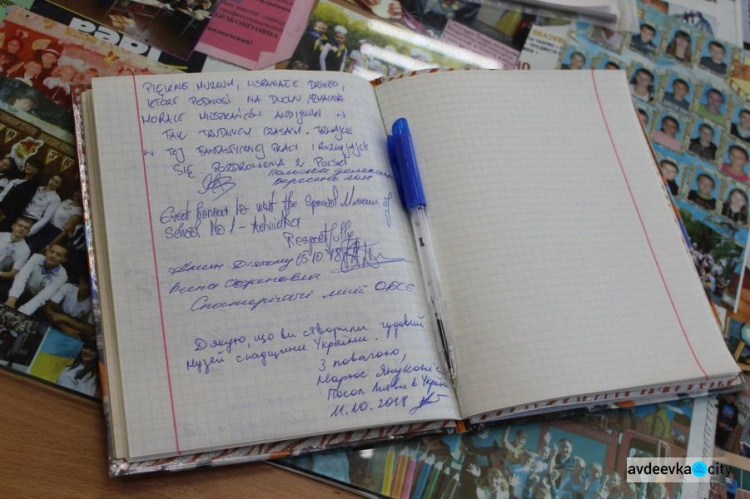 PIĘKNE MUZEUM, WSPANIAŁE DZIEŁO,
KTÓRE PODNOSI NA DUCHU I
MORALE MIESZKAŃCÓW AWDIJIWKI W
TAK TRUDNYCH CZASACH. TRWAJCIE
W TEJ FANTASTYCZNEJ PRACY I ROZWIJAJCIE
SIĘ POZDROWIENIA Z POLSKI
польська делегація
вересень 2018
Great honour to visit the Special Museum of
School No 1 - Advіivka
Respectfully
05.10.18
Спостерігачі місії ОБСЄ
Дякую, що ви створили чудовий
музей спадщини України.
З повагою,
Марюс Януконіс
Посол Литви в Україні
11.10.2018
avdeevka.city